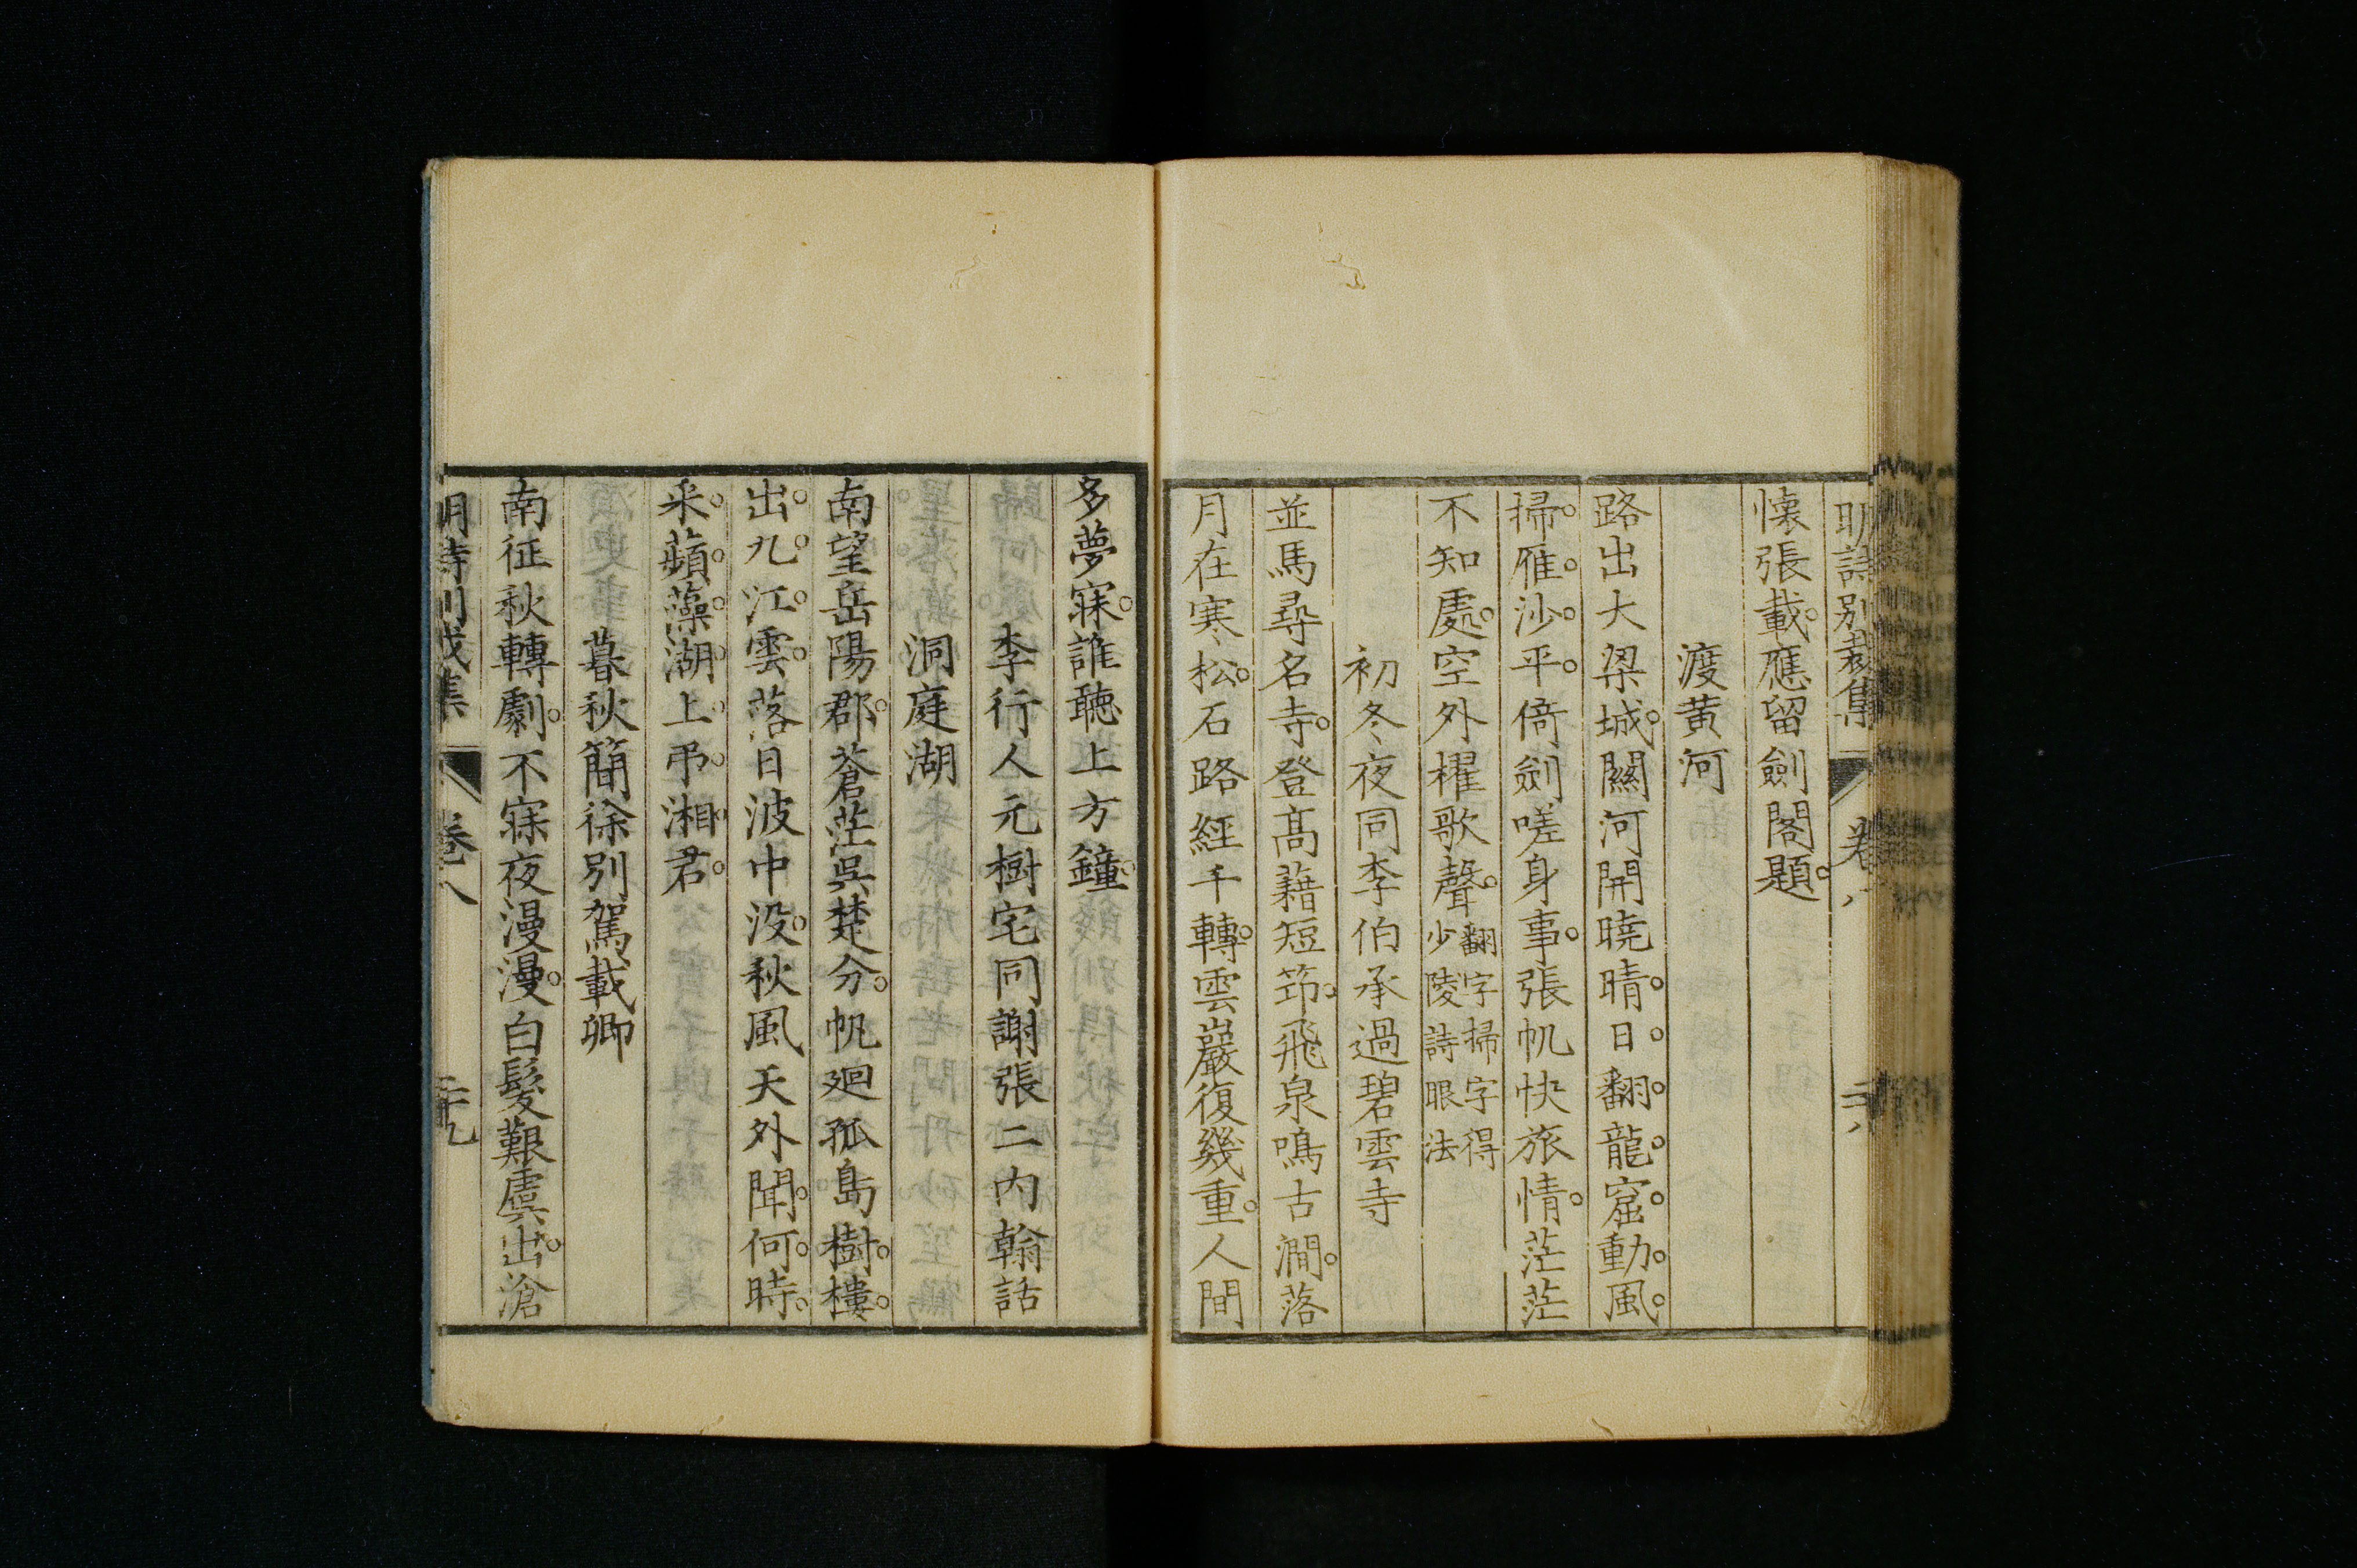 明詩別裁集 卷八 二八
懷張載應留劍閣題
渡黃河
路出大梁城關河開曉晴日翻龍窟動風
掃雁沙平倚劍嗟身事張帆快旅情茫茫
不知處空外櫂歌聲翻字掃字得少陵詩眼法
初冬夜同李伯承過碧雲寺
並馬尋名寺登高藉短筇飛泉鳴古澗落
月在寒松石路經千轉雲巖復幾重人間
多夢寐誰聽上方鐘
李行人元樹宅同謝張二內翰話
洞庭湖
南望岳陽郡蒼茫吳楚分帆迴孤島樹樓
出九江雲落日波中没秋風天外聞何時
采蘋藻湖上弔湘君
暮秋簡徐別駕載卿
南征秋轉劇不寐夜漫漫白髮艱虞出滄
明詩別裁集 卷八 二十九